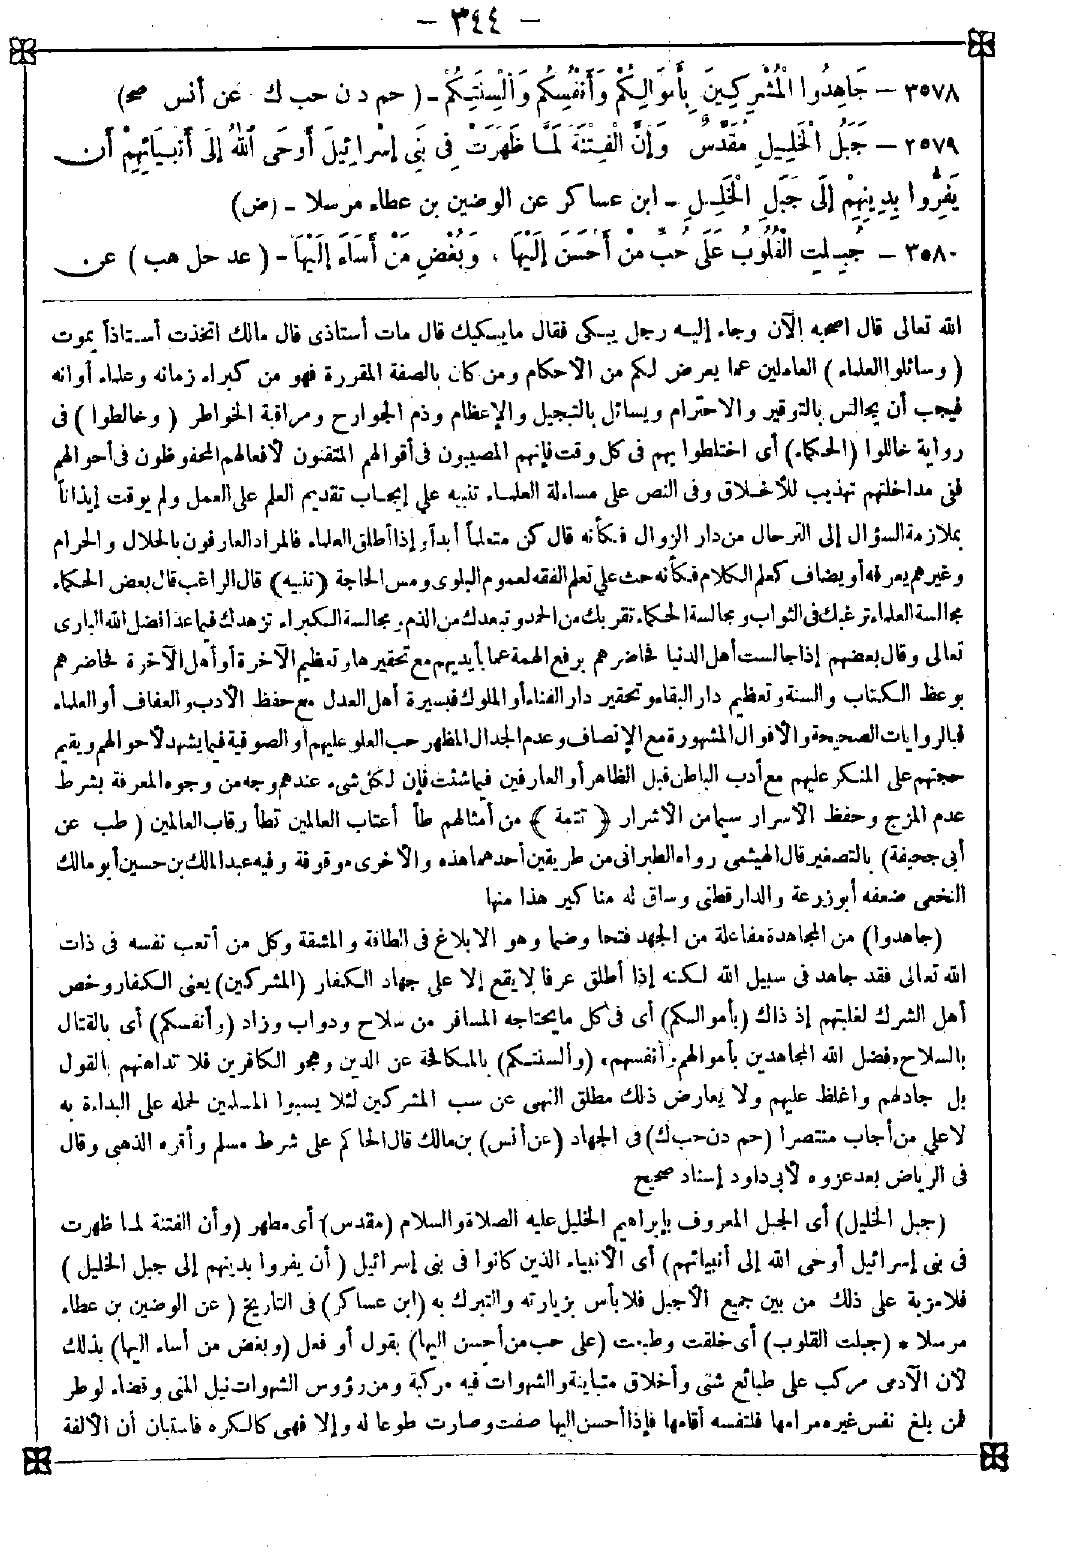 - ٣٤٤ -
٣٥٧٨ - جَاهِدُوا الْمُشْرِكِينَ بِأَمْوَالِكُمْ وَأَنْفُسِكُم وَأَلْسِنَتِكُمْ - ( حم د ن حب ك عن أنس صح)
٢٥٧٩ - جَبَلُ الْخَلِيلِ مُقَدَّسٌ وَإِنَّ الْفِتْنَةَ لَمَّا ظَهَرَتْ فِي بَنِي إِسْرَائِيلَ أَوْحَى اللهُ إِلَى أَنْبِيَائِهِمْ أَن
يَفِرُّوا بِدِينِهِمْ إِلَى جَبَلِ الْخَلِيلِ - ابن عساكر عن الوضين بن عطاء مرسلا - (ض)
٣٥٨٠ - جُبِلَتِ الْقُلُوبُ عَلَى حُبِّ مَنْ أَحْسَنَ إِلَيْهَا ، وَبُغْضِ مَنْ أَسَاءَ إِلَيْهَا - ( عد حل هب ) عن
الله تعالى قال اصحبه الآن وجاء إليه رجل يبكى فقال مايبكيك قال مات أستاذى قال مالك اتخذت أستاذاً يموت
( وسائلوا العلماء ) العاملين عما يعرض لكم من الأحكام ومن كان بالصفة المقررة فهو من كبراء زمانه وعلماء أوانه
فيجب أن يجالس بالتوقير والاحترام ويسائل بالتبجيل والإعظام وذم الجوارح ومراقبة الخواطر ( وخالطوا ) فى
رواية خاللوا (الحكماء) أى اختلطوا بهم فى كل وقت فإنهم المصيبون فى أقوالهم المتقنون لأفعالهم المحفوظون فى أحوالهم
ففى مداخلتهم تهذيب للأخلاق وفى النص على مساءلة العلماء تنبيه على إيجاب تقديم العلم على العمل ولم يوقت إيذاناً
بملازمة السؤال إلى الترحال من دار الزوال فكأنه قال كن متعلماً أبدا وإذا أطلق العلماء فالمراد العارفون بالحلال والحرام
وغيرهم يعرفه أو يضاف كعلم الكلام فكأنه حث على تعلم الفقه لعموم البلوى ومس الحاجة (تنبيه) قال الراغب قال بعض الحكماء
مجالسة العلماء ترغبك فى الثواب ومجالسة الحكماء تقربك من الحمد وتبعدك من الذم ومجالسة الكبراء تزهدك فيما عدا فضل الله البارى
تعالى وقال بعضهم إذا جالست أهل الدنيا فحاضرهم برفع الهمة عما بأيديهم مع تحقيرها وتعظيم الآخرة أو أهل الآخرة فحاضرهم
بوعظ الكتاب والسنة وتعظيم دار البقاء وتحقير دار الفناء أو الملوك فبسيرة أهل العدل مع حفظ الأدب والعفاف أو العلماء
فبالروايات الصحيحة والأقوال المشهورة مع الإنصاف وعدم الجدال المظهر حب العلو عليهم أو الصوفية فيما يشهد لأحوالهم ويقيم
حجتهم على المنكر عليهم مع أدب الباطن قبل الظاهر أو العارفين فيما شئت فإن لكل شىء عندهم وجه من وجوه المعرفة بشرط
عدم المزج وحفظ الأسرار سيما من الأشرار ﴿ تتمة ﴾ من أمثالهم طأ أعتاب العالمين تطأ رقاب العالمين ( طب عن
أبى جحيفة) بالتصغير قال الهيثمى رواه الطبرانى من طريقين أحدهما هذه والأخرى موقوفة وفيه عبد الملك بن حسين أبو مالك
النخعى ضعفه أبو زرعة والدارقطنى وساق له مناكير هذا منها
(جاهدوا) من المجاهدة مفاعلة من الجهد فتحا وضما وهو الابلاغ فى الطاقة والمشقة وكل من أتعب نفسه فى ذات
الله تعالى فقد جاهد فى سبيل الله لكنه إذا أطلق عرفا لايقع إلا على جهاد الكفار (المشركين) يعنى الكفار وخص
أهل الشرك لغلبتهم إذ ذاك (بأموالكم) أى فى كل مايحتاجه المسافر من سلاح ودواب وزاد (وأنفسكم) أى بالقتال
بالسلاح، فضل الله المجاهدين بأموالهم وأنفسهم، (وألسنتكم) بالمكافحة عن الدين وهجو الكافرين فلا تداهنهم بالقول
بل جادلهم واغلظ عليهم ولا يعارض ذلك مطلق النهى عن سب المشركين لئلا يسبوا المسلمين لحمله على البداءة به
لا على من أجاب منتصرا (حم دن حب ك) فى الجهاد (عن أنس) بن مالك قال الحاكم على شرط مسلم وأقره الذهبى وقال
فى الرياض بعد عزوه لأبى داود إسناد صحيح
(جبل الخليل) أى الجبل المعروف بإبراهيم الخليل عليه الصلاة والسلام (مقدس) أى مطهر (وأن الفتنة لما ظهرت
فى بنى إسرائيل أوحى الله إلى أنبيائهم) أى الأنبياء الذين كانوا فى بنى إسرائيل ( أن يفروا بدينهم إلى جبل الخليل )
فلا مزية على ذلك من بين جميع الأجبل فلا بأس بزيارته والتبرك به (ابن عساكر) فى التاريخ ( عن الوضين بن عطاء
مرسلا * (جبلت القلوب) أى خلقت وطبعت (على حب من أحسن اليها) بقول أو فعل (وبغض من أساء اليها) بذلك
لأن الآدمى مركب على طبائع شتى وأخلاق متباينة والشهوات فيه مركبة ومن رؤوس الشهوات نيل المنى وقضاء لوطر
فمن بلغ نفس غيره مرامها فلنفسه أقامها فإذا أحسن اليها صفت وصارت طوعا له وإلا فهى كالكره فاستبان أن الألفة